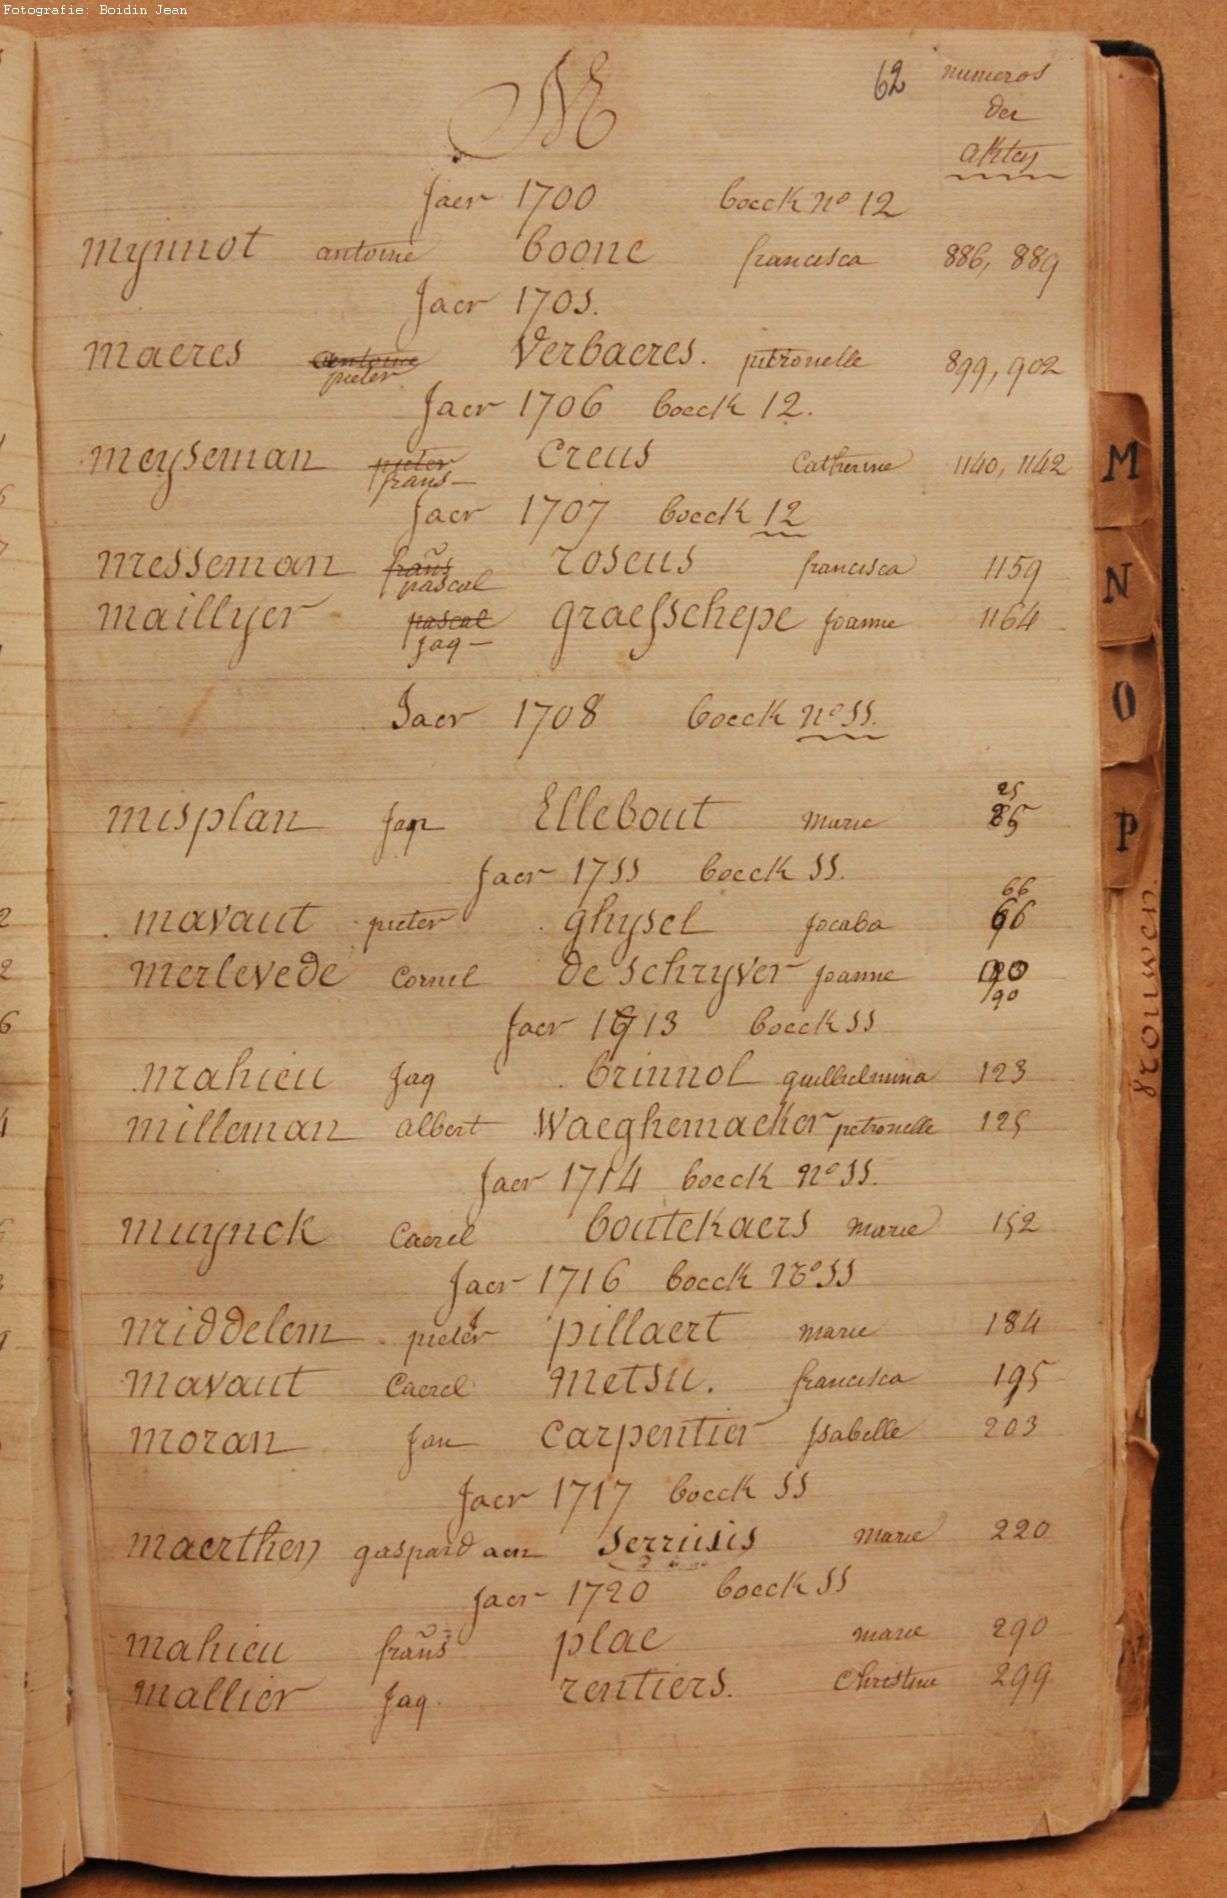 Fotografie: Boidin Jean
M 62 numeros
der
akten
Jaer 1700 boeck no 12
mynnot antoine boone francisca 886, 889
Jaer 1705.
maeres antoine verbaeres. petronelle 899, 902
pieter
Jaer 1706 boeck 12.
meyseman pieter creus Catherine 1140, 1142
frans
Jaer 1707 boeck 12
messeman frans roseus francisca 1159
pascal
maillyer pascal graefschepe Joanne 1164
Jaq
Jaer 1708 boeck no SS.
25
misplan Jan Ellebout Marie 85
Jaer 17SS boeck SS.
66
mavaut pieter ghysel Jocaba 66
merlevede Cornel de schryver Joanne
90
Jaer 1713 boeck SS
mahieu Jaq brinnol guilhelmina 123
milleman albert Waeghemaeker petronelle 125
Jaer 1714 boeck no SS.
muynck Caerel boutekaers marie 152
Jaer 1716 boeck no SS
middelem pieter pillaert marie 184
mavaut Caerel metsu. francisca 195
moran Jan carpentier Isabelle 203
Jaer 1717 boeck SS
maerthen gaspard aen serrusis marie 220
Jaer 1720 boeck SS
mahieu frans plae marie 290
mallier Jaq. rentiers. Christine 299
M
N
O
P